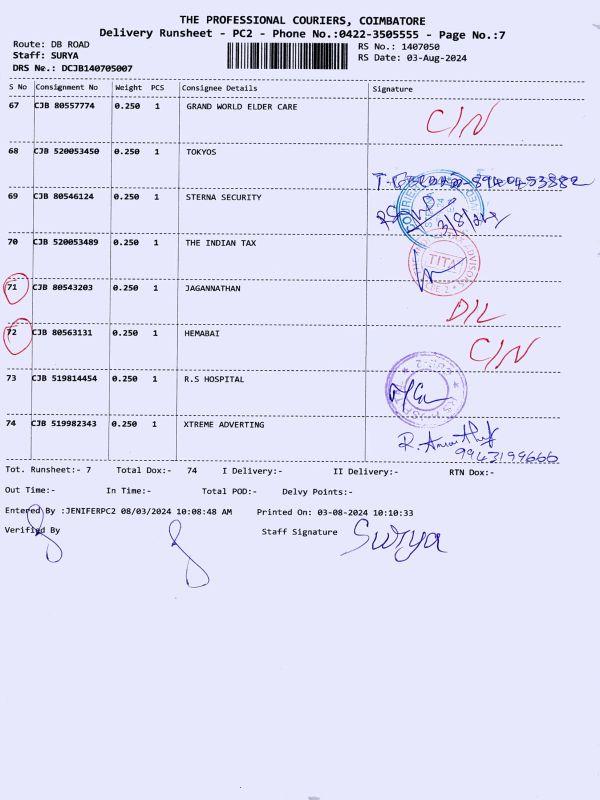 THE PROFESSIONAL COURIERS, COIMBATORE
Delivery Runsheet - PC2 - Phone No.:0422-3505555 - Page No.:7
Route: DB ROAD
RS No.: 1407050
Staff: SURYA
RS Date: 03-Aug-2024
DRS No.: DCJB140705007
S No Consignment No Weight PCS Consignee Details Signature
67 CJB 80557774 0.250 1 GRAND WORLD ELDER CARE C/N
68 CJB 520053450 0.250 1 TOKYOS
69 CJB 80546124 0.250 1 STERNA SECURITY 3/8/24
70 CJB 520053489 0.250 1 THE INDIAN TAX TITA
71 CJB 80543203 0.250 1 JAGANNATHAN D/L
72 CJB 80563131 0.250 1 HEMABAI C/N
73 CJB 519814454 0.250 1 R.S HOSPITAL
74 CJB 519982343 0.250 1 XTREME ADVERTING
9943199666
Tot. Runsheet:- 7 Total Dox:- 74 I Delivery:- II Delivery:- RTN Dox:-
Out Time:- In Time:- Total POD:- Delvy Points:-
Entered By :JENIFERPC2 08/03/2024 10:08:48 AM Printed On: 03-08-2024 10:10:33
Verified By Staff Signature Surya